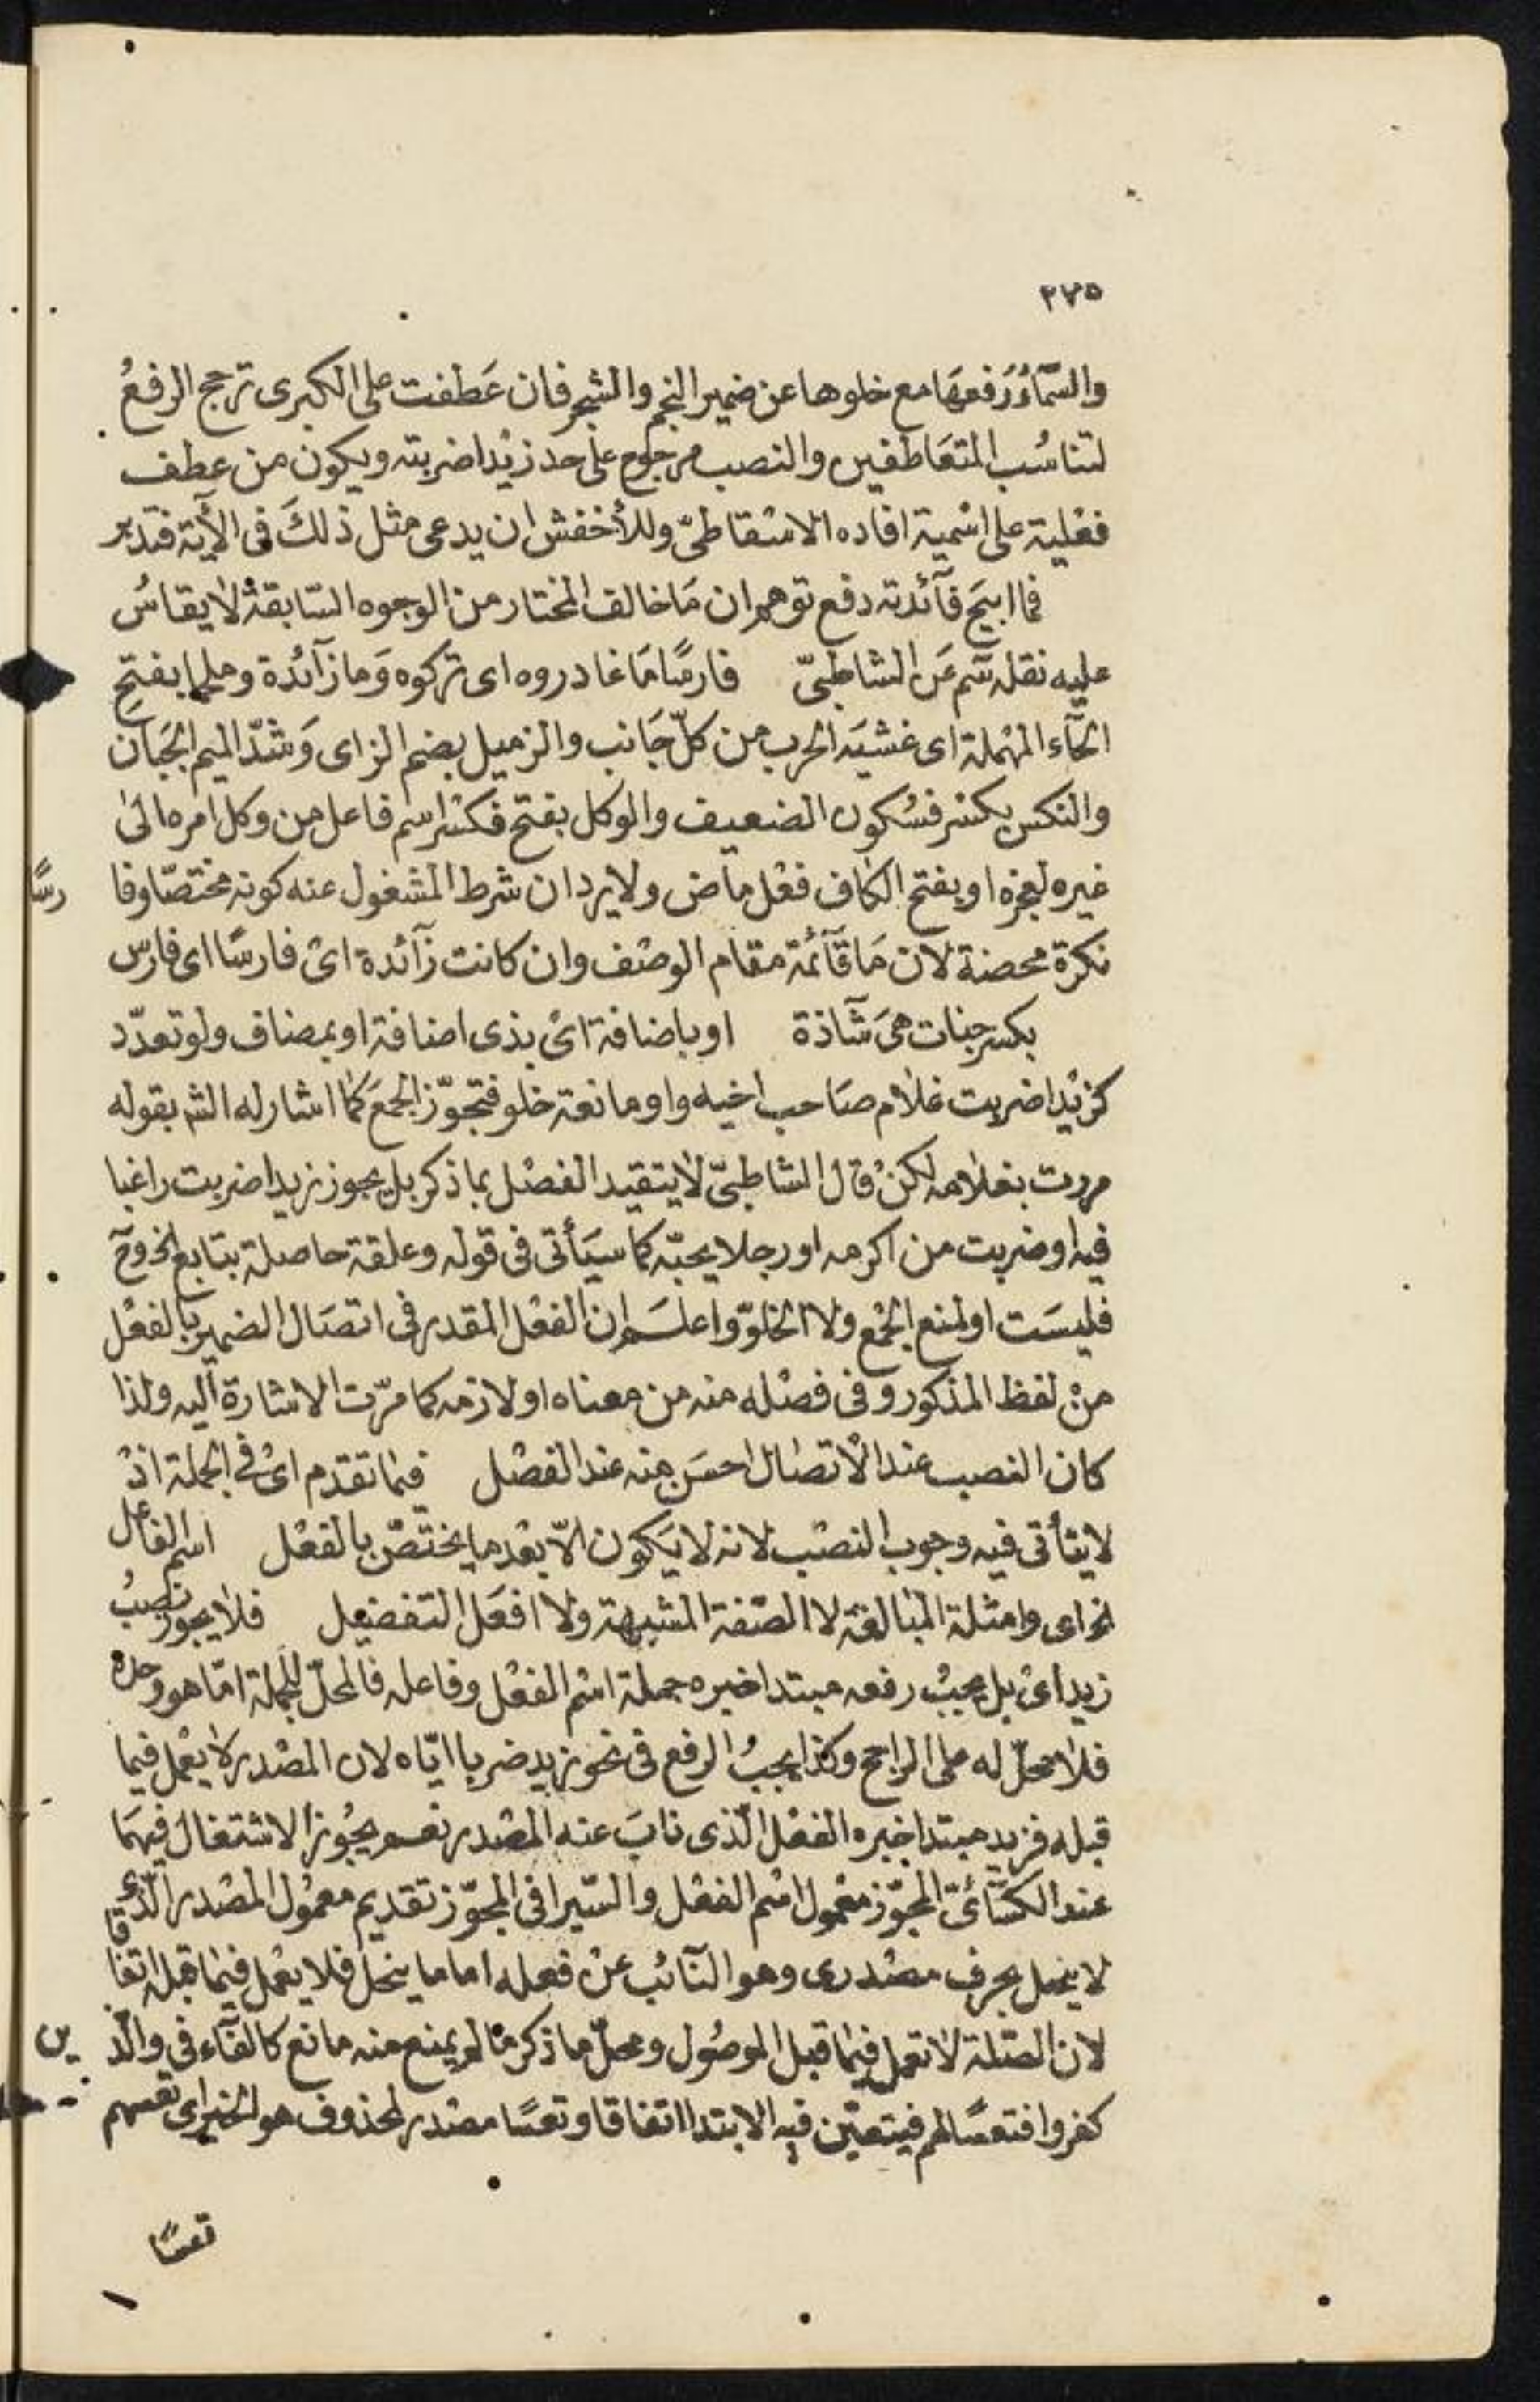 ٢٧٥
والسّمآءَ رَفعهَا مع خلوها عن ضمير النجم والشجر فان عَطفت على الكبرى ترجح الرفعُ
لتناسُب المتعَاطفين والنصب مرجوح على حد زيْدا ضربته ويكون من عطف
فعْلية على اسْمية افاده الاسْقاطىّ وللأخفش ان يدعى مثل ذلكَ فى الآية فتدبر
فما ابيحَ فآئدته دفع توهم ان مَا خالف المختار من الوجوه السّابقة لا يقاسُ
عليه نقله سم عَن الشاطبىّ فارسًا مَا غادروه اى تركوه وَما زآئدة وملحما بفتحِ
الحآء المهْملة اى غشيَه الحرب من كلّ جَانب والزميل بضم الزاى وَشدّ الميم الجَبان
والنكس بكسْر فسُكون الضعيف والوكل بفتح فكسْر اسم فاعل من وكل امره الىَ
غيره لعجزه او بفتح الكاف فعْل ماض ولا يرد ان شرط المشغول عنه كونه مختصّا وفا رسًا
نكرة محضة لان مَا قآئمة مقام الوصْف وان كانت زآئدة اىْ فارسًا اى فارس
بكسر جنات هىَ شَآذة او باضافة اىْ بذى اضافة او بمضاف ولو تعدّد
كزيْدا ضربت غلام صَاحب اخيه واو مانعة خلو فتجوّز الجمَع كما اشار له الشـ بقوله
مررت بغلامه لكنْ قال الشاطبىّ لا يتقيد الفصْل بما ذكر بل يجوز زيدا ضربت راغبا
فيه او ضربت من اكرمه او رجلا يحبّه كما سيَأتى فى قوله وعلقة حاصلة بتابع الخ وحَ
فليسَت او لمنع الجمْع ولا الخلوّ واعلـم ان الفعْل المقدر فى اتصَال الضمير بالفعْل
منْ لفظ المذكور وفى فصْله منه من معناه او لازمه كما مرّت الاشارة اليه ولذا
كان النصب عند الاتصال احسَن منه عند الفصْل فيما تقدم اىْ فى الجملة اذْ
لا يتأتى فيه وجوب النصْب لانه لا يَكون الاّ بعْد ما يختصّ بالفعْل اسم الفاعل
الخ اى وامثلة المبالغة لا الصّفة المشبهة ولا افعَل التفضيل فلا يجوز نصبُ
زيد اىْ بل يجبْ رفعه مبتدا خبره جملة اسْم الفعْل وفاعله فالمحلّ للجملة امّا هو وحده
فلا محلّ له على الراجح وكذا يجبُ الرفع فى نحو زيد ضربا ايّاه لان المصْدر لا يعْمل فيما
قبله فزيد مبتدا خبره الفعْل الّذى نابَ عنه المصْدر نعـم يجُوز الاشتغال فيهمَا
عند الكسَآئىّ المجوّز معْمول اسْم الفعْل والسّيرافى المجوّز تقديم معمُول المصْدر الّذى
لا ينحل بحرف مصْدرى وهو النّآئب عنْ فعله اما ما ينحل فلا يعْمل فيما قبله اتفاقا
لان الصّلة لا تعمل فيما قبل الموصُول ومحلّ ما ذكر ما لم يمنع منه مانع كالفآء فى والّذ ين
كفروا فتعسًا لهم فيتعيّن فيه الابتدا اتفاقا وتعسًا مصْدر لمحذوف هو الخبر اى تعسهم
تعسًا